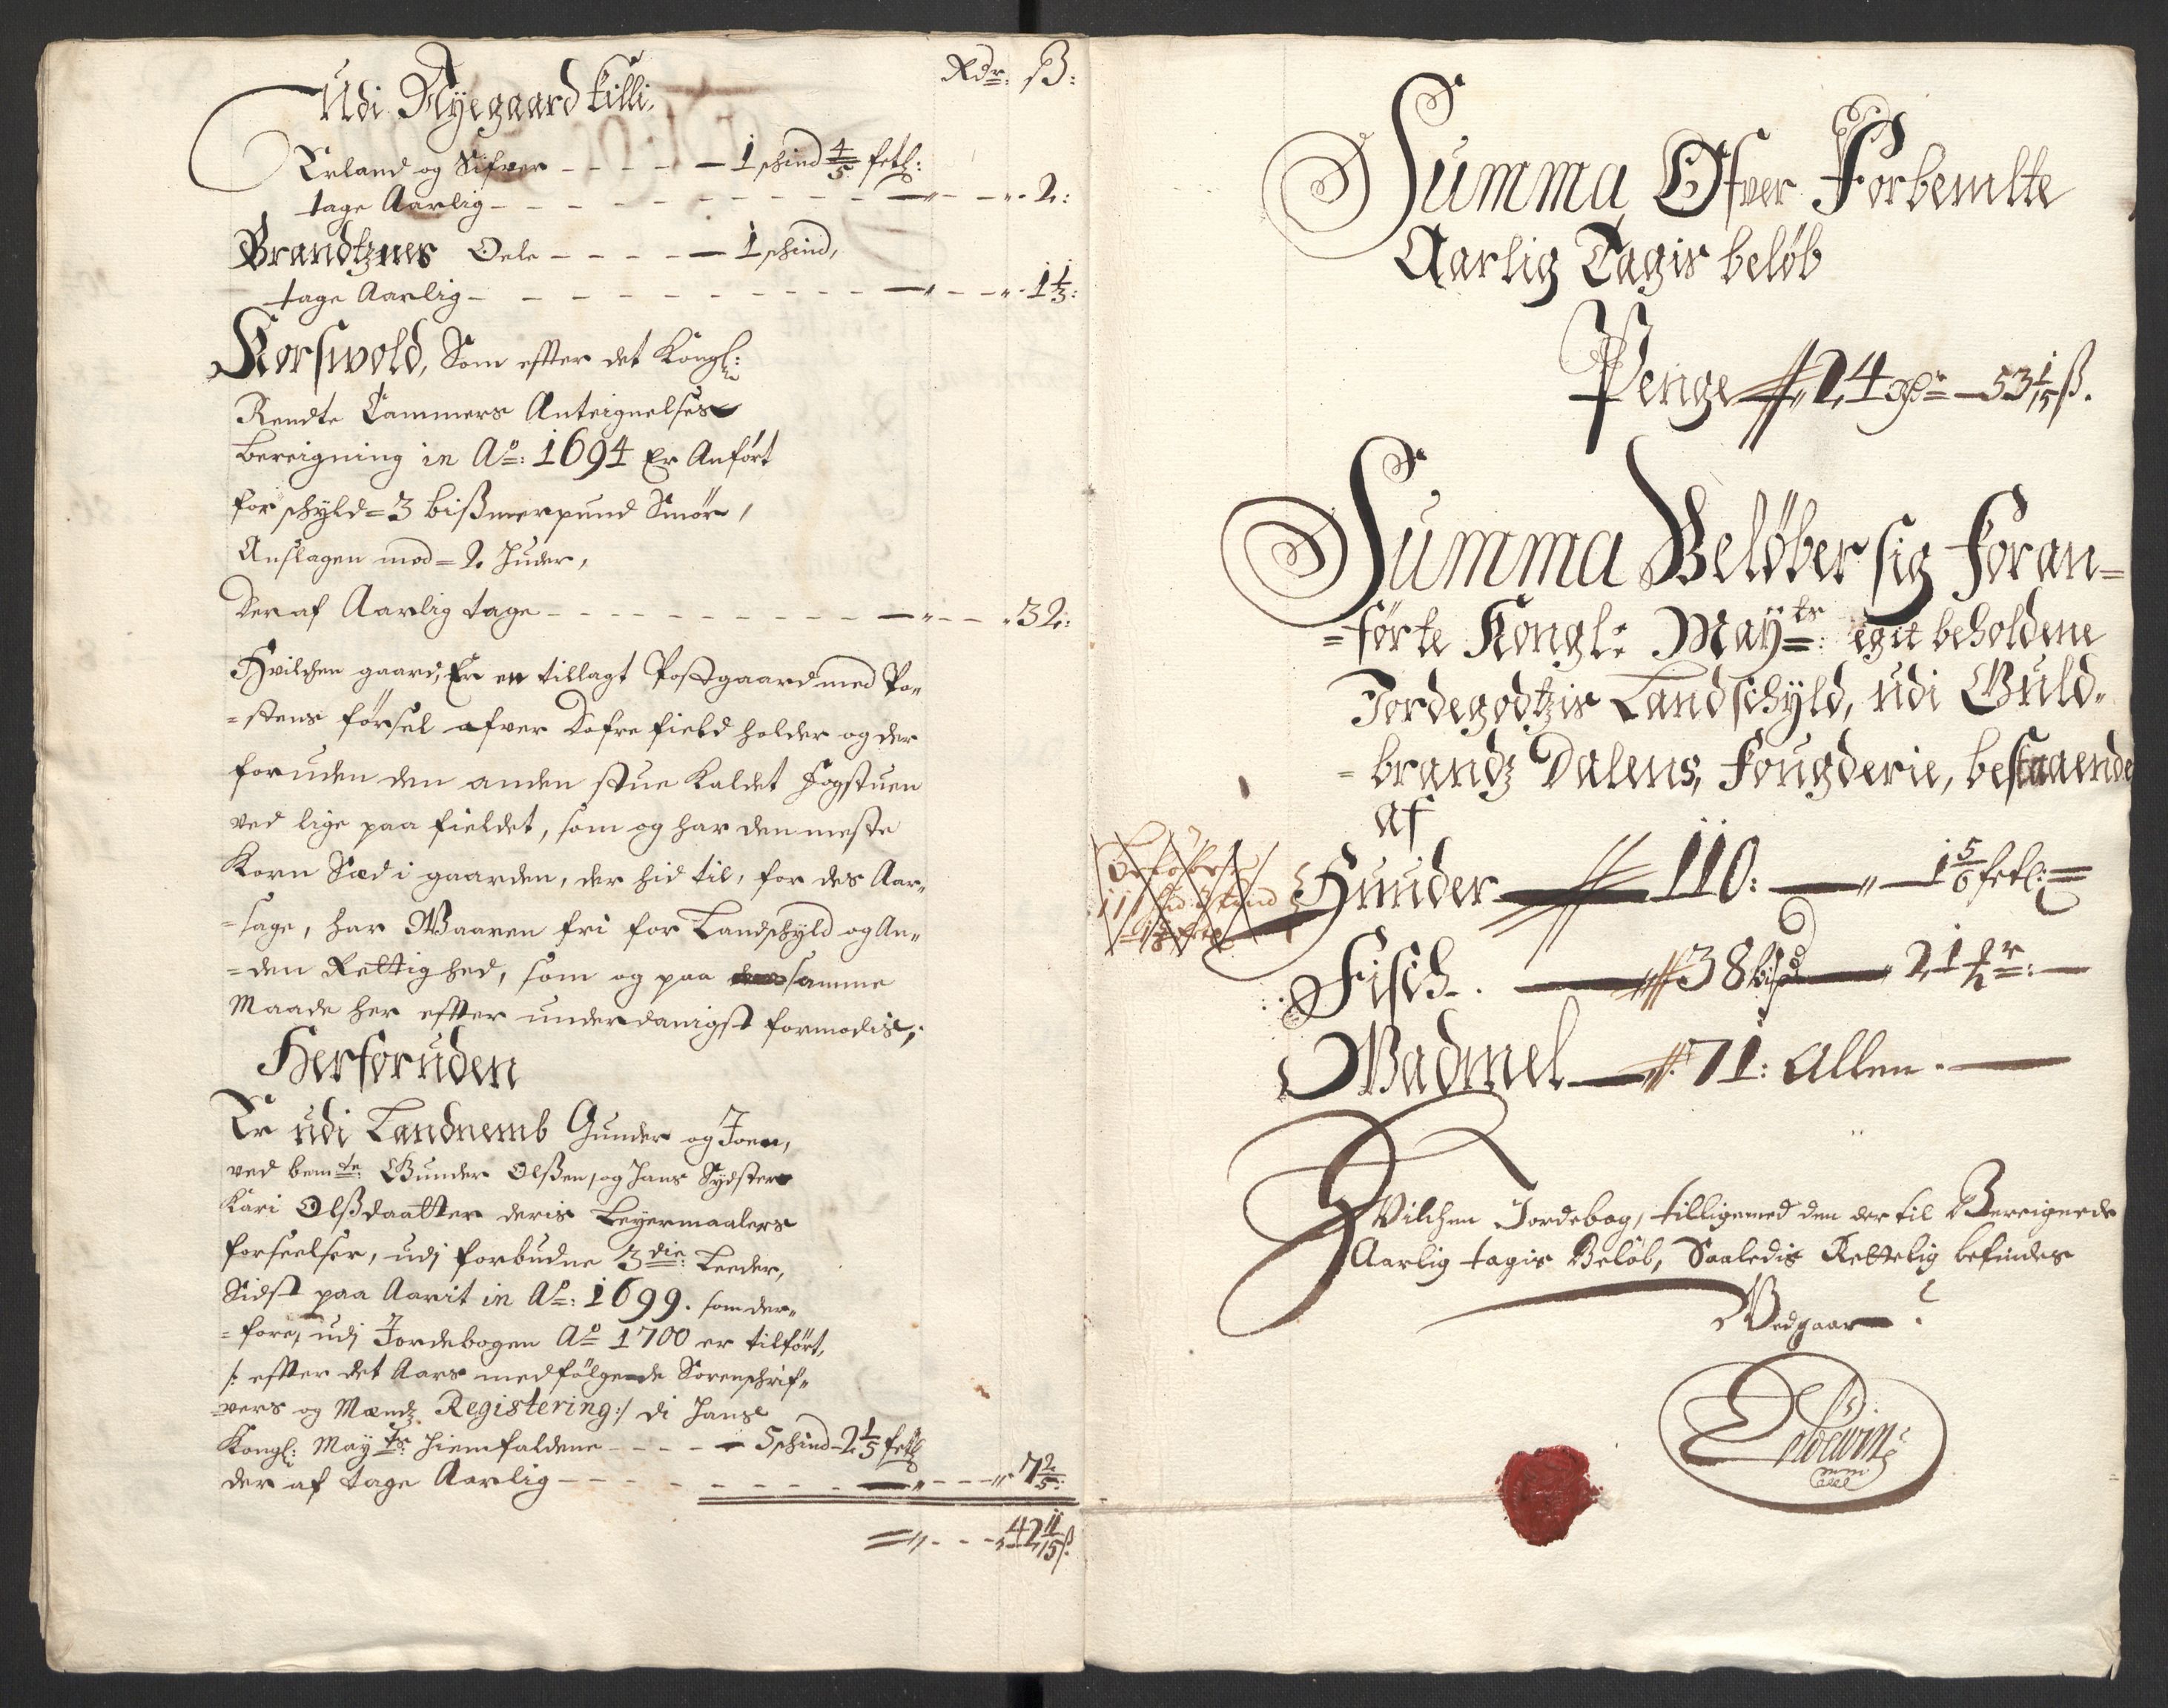 Rdr: ß:
Udi Nÿegaard tilli.
Erland og Sifver - - - - - 1 schind 4/5 fetl:
tage Aarlig - - - - - - - - - - - - 2:
Brandtznes Oele - - - - - 1 schind,
tage Aarlig - - - - - - - - - - - - 1 1/3:
Korswold, Som effter det Kongl:
Rendte Cammers Anteignelses
bereigning in Ao: 1694 Er Anført
for schÿld = 3 bißmerpund Smør,
Anslagen mod = 2 Huder,
der af Aarlig tage - - - - - - - - - - 32:
Hvilchen gaard, Er en tillagt Postgaard med Po=
=stens førsel ofver Dofrefield holder og der
foruden den anden stue kaldet Fogstuen
ved lige paa fieldet, som og har den meste
Korn Sæd i gaarden, der hid til, for des Aar=
=sage, har Waaren fri for Landschÿld og An=
=den Rettighed, som og paa samme
Maade her effter underdanigst formodis;
Herforuden
Er udi Landnemb Gunder og Joen,
ved bemte: Gunder Olßen, og hans Sÿdster
Kari Olßdaatter deris Leÿermaalers
forseelser, udj forbudne 3die: Leeder,
Sidst paa Aarit in Ao: 1699. som der=
=fore, udj Jordebogen Ao 1700 er tilført,
/: effter det Aars medfølgende Sorenschrif=
=vers og Mændz Registering :/ di hans
Kongl: Maÿts: hiemfaldene - - - - 5 schind - 2 1/5 fetl
der af tage Aarlig - - - - - - - - - 7 2/5:
42 11/15 ß.
Summa Ofver Forbemlte
Aarlig Tagis beløb
Penge 24 Rdr - 53 1/15 ß.
Summa Beløber sig foran=
=førte Kongl: Maÿts: eget beholdene
Jordegodtzis Landschÿld, udi Guld=
=brandz Dalens, Fougderie, bestaaende
af
Huuder 110: - 1 5/6 fetl:
Fisch. 38 bispd 21 1/2 mr:
Wadmel 71: Allen.
Hvilchen Jordebog, tilligemed den der til Bereignede
Aarlig tagis Beløb, Saaledis Rettelig befindes
Vedgaar